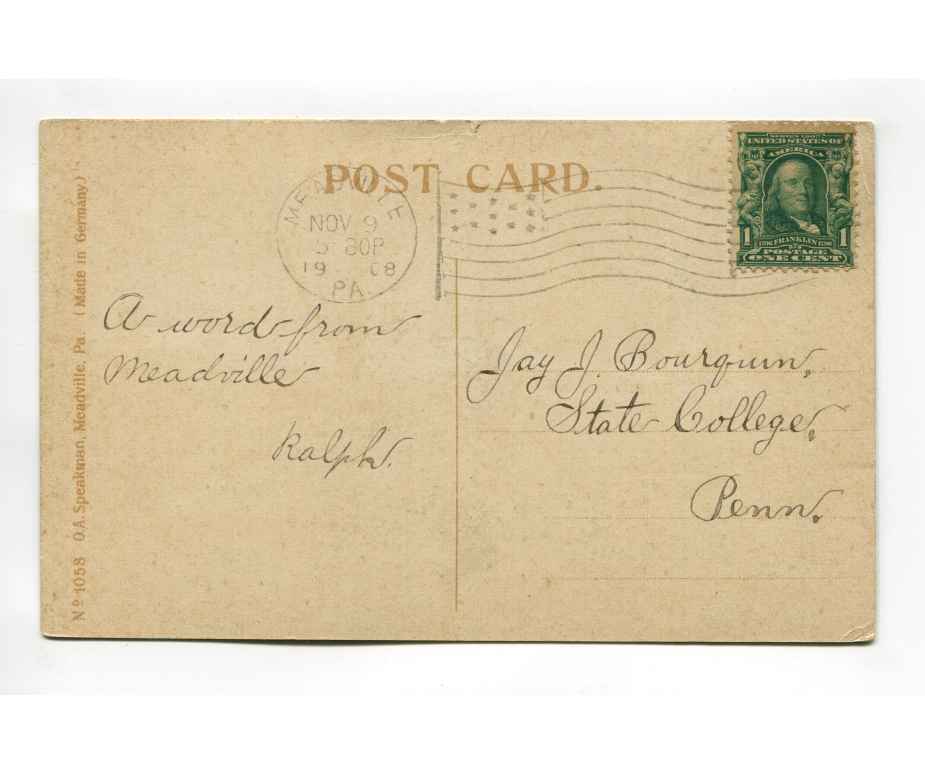 POST CARD.
MEADVILLE
NOV 9
5 30P
1908
PA
SERIES 1902
UNITED STATES OF
AMERICA
1706 FRANKLIN 1790
POSTAGE
1 ONE CENT 1
A word from
Meadville
Ralph.
Jay J. Bourquin,
State College,
Penn.
Nº 1058 O.A. Speakman, Meadville, Pa. (Made in Germany.)